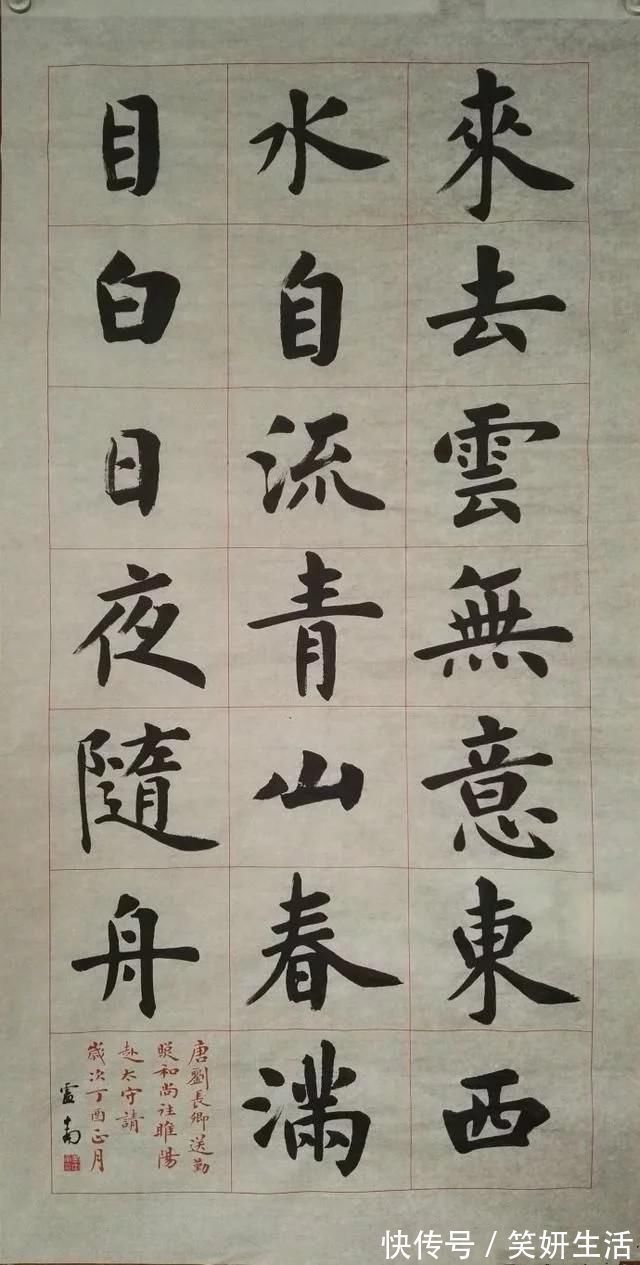 來去雲無意東西
水自流青山春滿
目白日夜隨舟
唐劉長卿送勤
照和尚往睢陽
赴太守請
歲次丁酉正月
快传号/笑妍生活